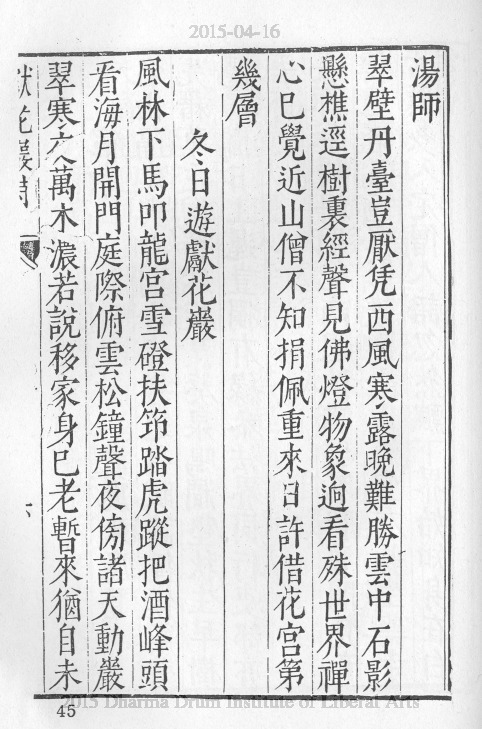 2015-04-16
湯師
翠壁丹臺豈厭凭西風寒露晚難勝雲中石影
懸樵逕樹裏經聲見佛燈物象逈看殊世界禪
心已覺近山僧不知捐佩重來日許借花宮第
幾層
冬日遊獻花巖
風林下馬叩龍宮雪磴扶筇踏虎蹤把酒峰頭
看海月開門庭際俯雲松鐘聲夜傍諸天動巖
翠寒交萬木濃若說移家身已老暫來猶自未
獻花巖詩
六
45
2015 Dharma Drum Institute of Liberal Arts